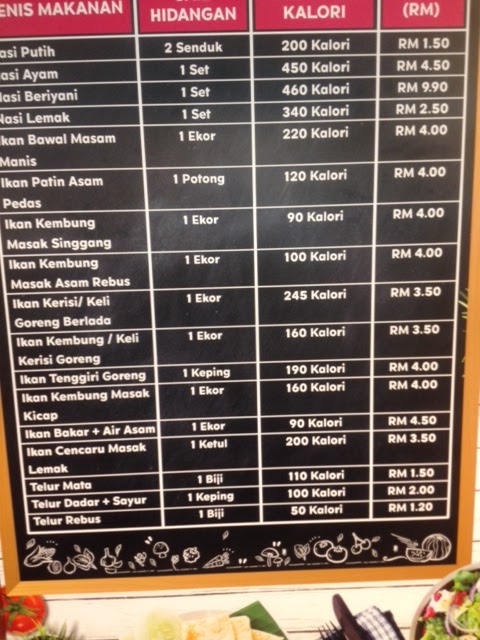 ENIS MAKANAN HIDANGAN KALORI (RM)
asi Putih 2 Senduk 200 Kalori RM 1.50
asi Ayam 1 Set 450 Kalori RM 4.50
Nasi Beriyani 1 Set 460 Kalori RM 9.90
Nasi Lemak 1 Set 340 Kalori RM 2.50
Ikan Bawal Masam 1 Ekor 220 Kalori RM 4.00
Manis
Ikan Patin Asam 1 Potong 120 Kalori RM 4.00
Pedas
Ikan Kembung 1 Ekor 90 Kalori RM 4.00
Masak Singgang
Ikan Kembung 1 Ekor 100 Kalori RM 4.00
Masak Asam Rebus
Ikan Kerisi/ Keli 1 Ekor 245 Kalori RM 3.50
Goreng Berlada
Ikan Kembung / Keli 1 Ekor 160 Kalori RM 3.50
Kerisi Goreng
Ikan Tenggiri Goreng 1 Keping 190 Kalori RM 4.00
Ikan Kembung Masak 1 Ekor 160 Kalori RM 4.00
Kicap
Ikan Bakar + Air Asam 1 Ekor 90 Kalori RM 4.50
Ikan Cencaru Masak 1 Ketul 200 Kalori RM 3.50
Lemak
Telur Mata 1 Biji 110 Kalori RM 1.50
Telur Dadar + Sayur 1 Keping 100 Kalori RM 2.00
Telur Rebus 1 Biji 50 Kalori RM 1.20